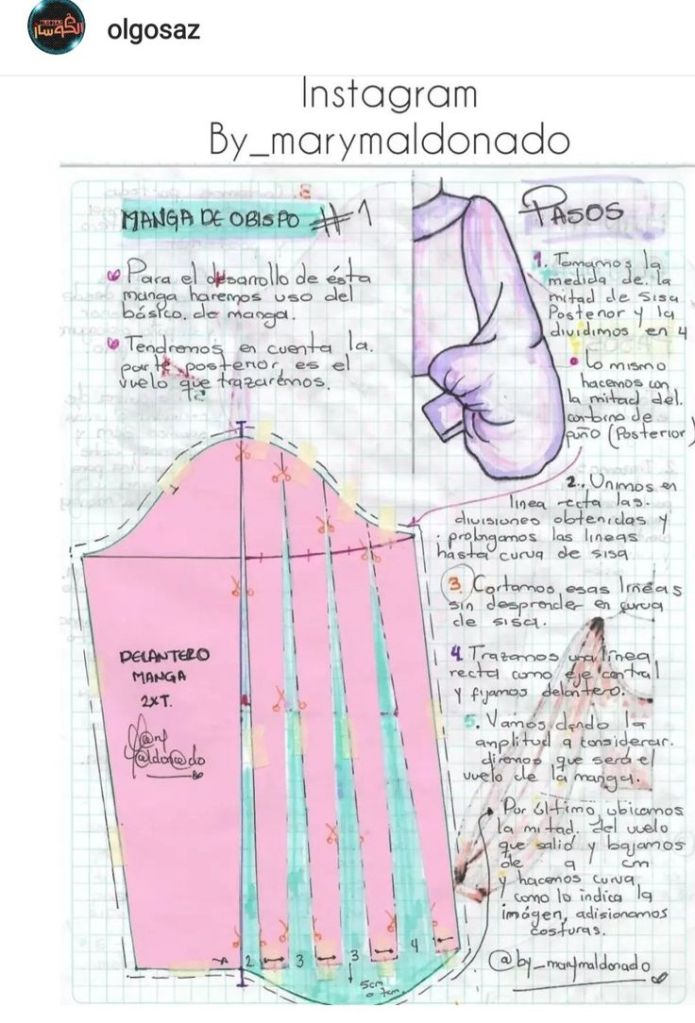 olgosaz
Instagram
By_marymaldonado
MANGA DE OBISPO #1
Para el desarrollo de ésta
manga haremos uso del
básico. de manga.
Tendremos en cuenta la.
parte posterior, es el
vuelo que trazaremos.
PASOS
1. Tomamos la
medida de la
mitad de sisa
Posterior y la
dividimos en 4
Lo mismo
hacemos con
la mitad del
contorno de
puño (Posterior)
2. Unimos en
linea recta las
divisiones obtenidas y
prolongamos las lineas
hasta curva de sisa
3. Cortamos esas líneas
sin desprender en curva
de sisa.
4. Trazamos una línea
recta como eje central
y fijamos delantero.
5. Vamos dando la
amplitud a considerar.
diremos que será el
vuelo de la manga.
Por último, ubicamos
la mitad del vuelo
que salió y bajamos
de a cm
y hacemos curva
como lo indica la
imágen, adisionamos
costuras.
@by_marymaldonado
DELANTERO
MANGA
2XT.
2 3 3 4
5cm